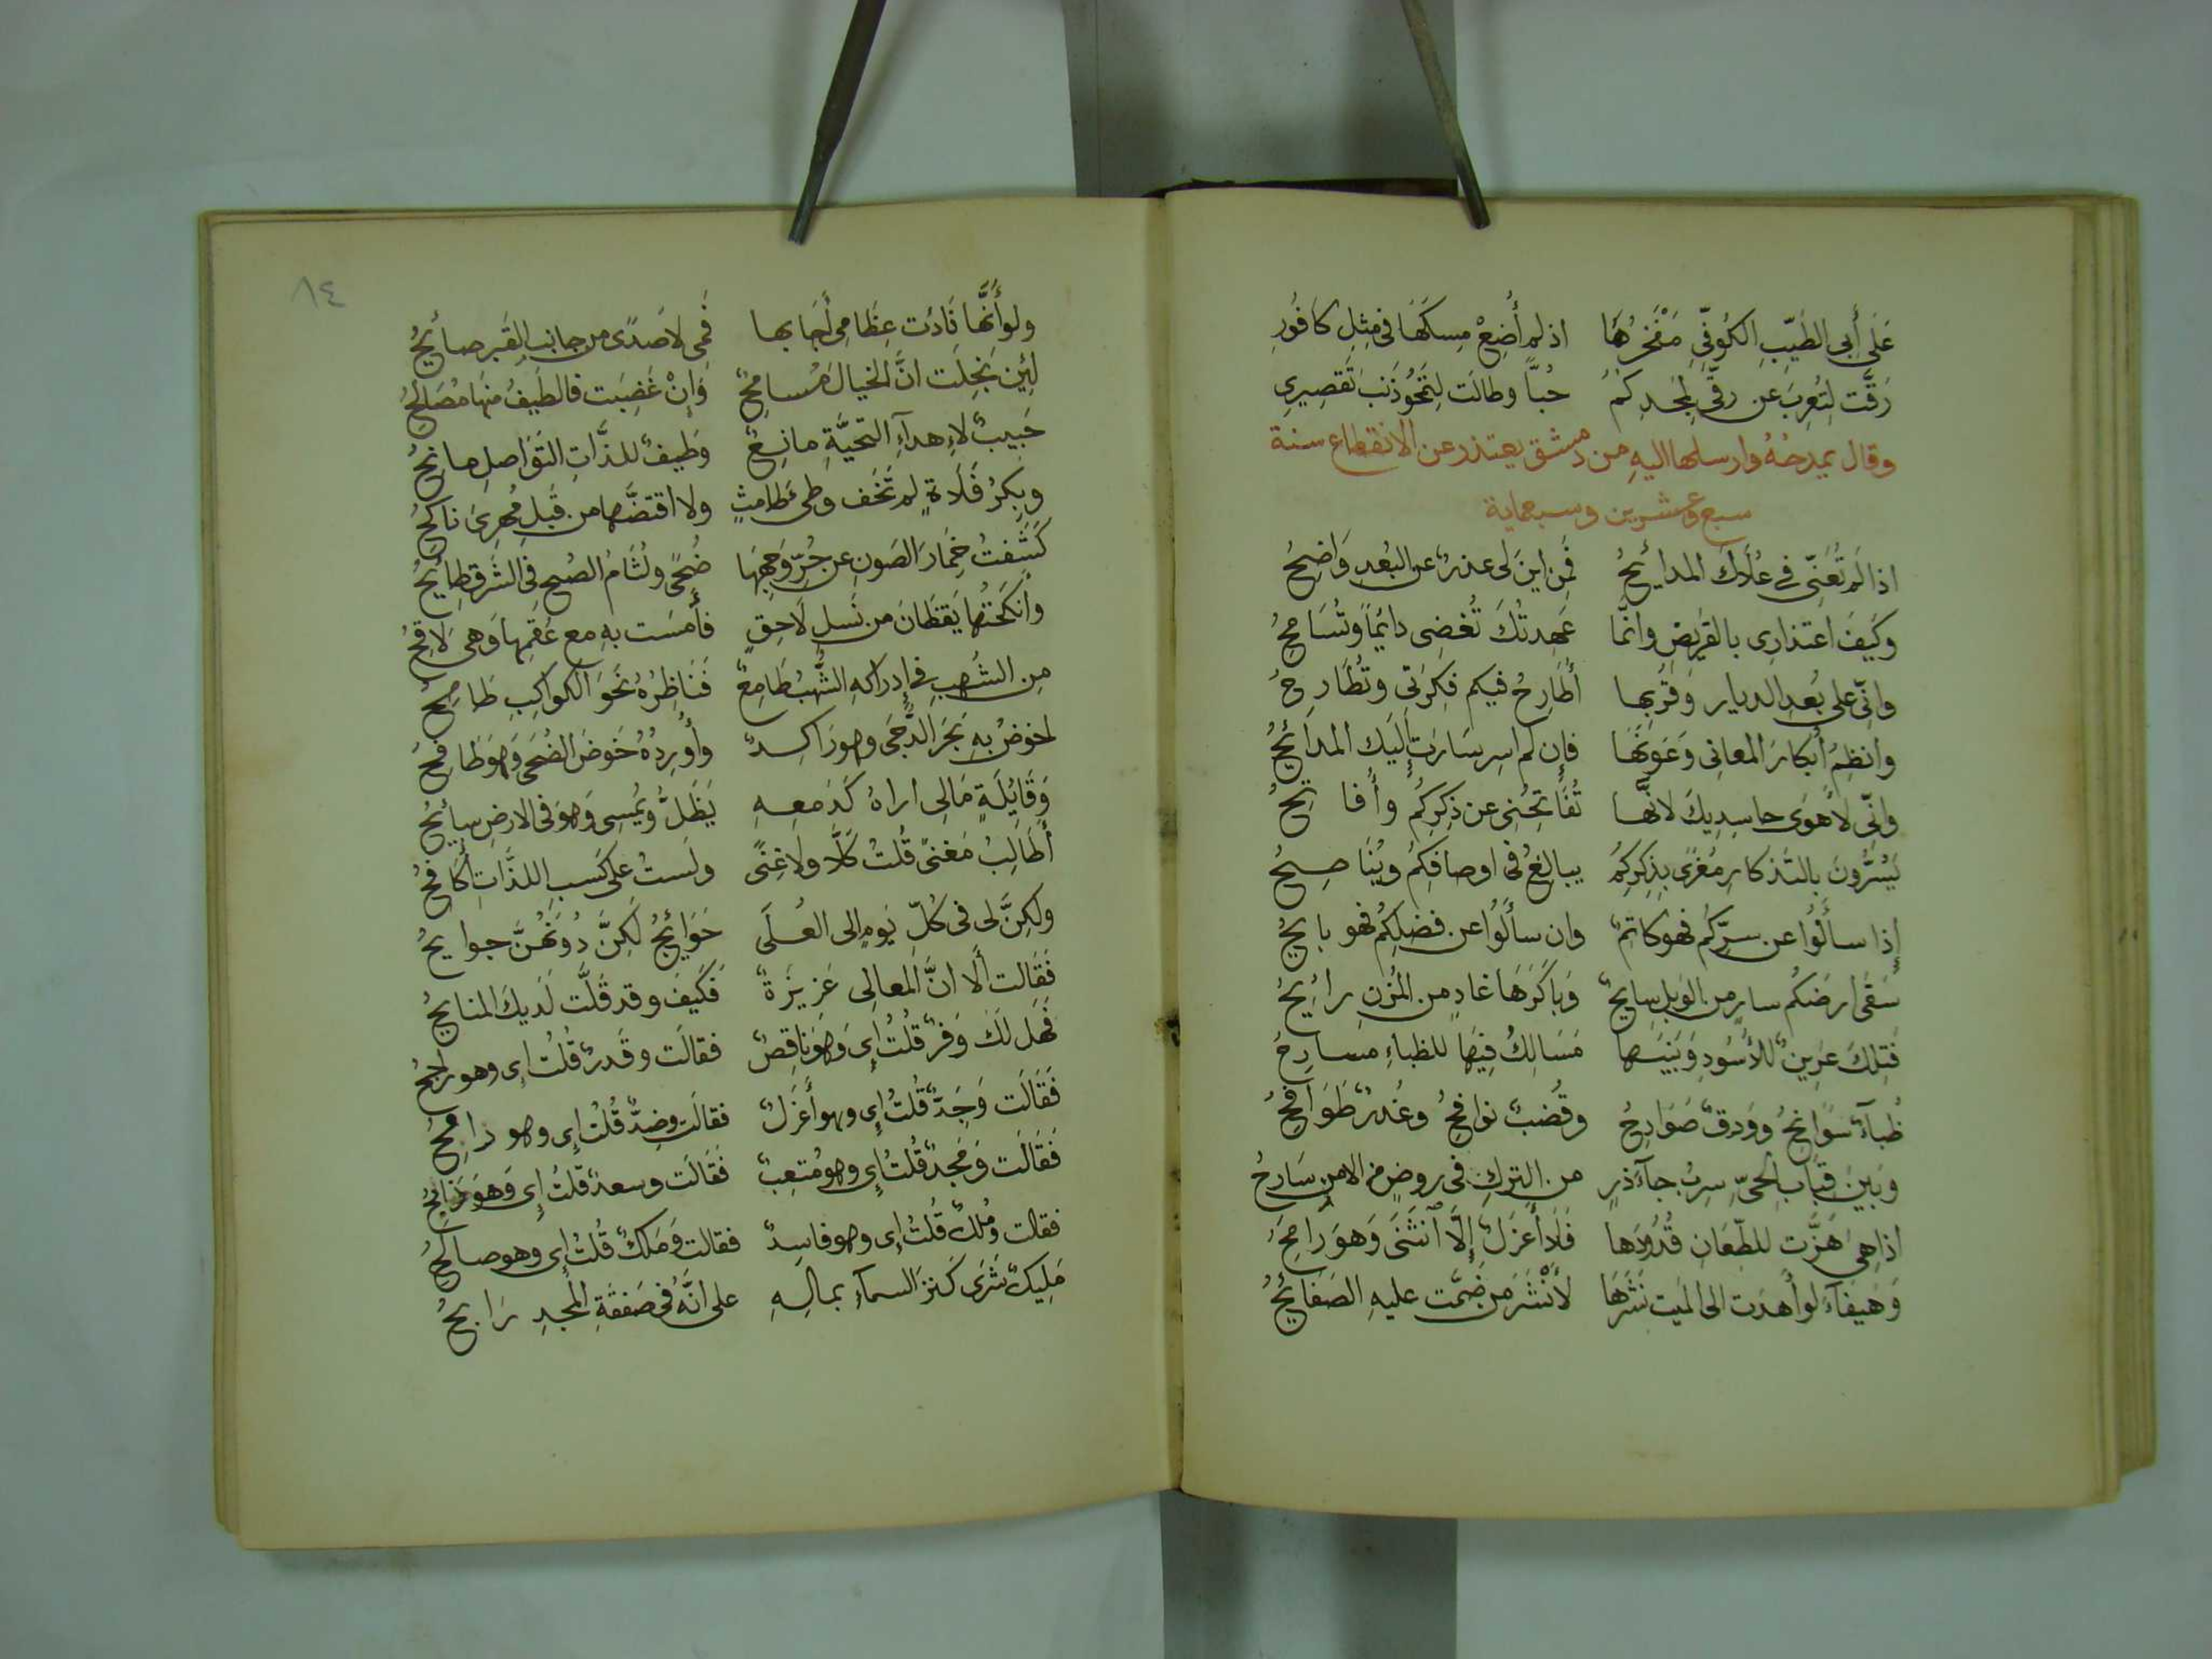 عَلَى أَبِى الطَيِّبِ الكُوفِّىِ مَفْخَرُهَا اذ لم أُضِعْ مِسكَهَا فى مِثلِ كافُورِ
رَقَّت لِتُعرِبَ عن رقّى لِمجدِكُمُ حُبّاً وطالَت لِتَمحُو ذَنبَ تَقصِيرِى
وقال يمدحُهُ وارسلها اليهِ من دمشق يعتذر عن الانقطاع سنة
سبع وعشرين وسبعماية
اذا لَم تُعَنِّى فى عُلَاكَ المدائِحُ فَمِن اينَ لى عذرٌ عن البُعدِ وَاضِحُ
وكَيفَ اعتذارِى بالقريضِ وانّما عَهِدتُكَ تُغضِى دائِماً وتُسَامِحُ
وانّى على بُعدِ الديار وقُربِها أُطَارِحُ فيكم فِكرَتِى وتُطَارِحُ
وانظِمُ أبكارَ المعانِى وَعَونَهَا فإن لم اسِر سَارَت إِليك المدَائِحُ
وانّى لأهوَى حاسِدِيكَ لأنّها تُفَاتِحُنِى عن ذِكرِكُم وأُفاتِحُ
يَسُرُّونَ بالتَذكارِ مُغرًى بِذِكرِكُم يبالِغُ فى اوصافِكُم ويُنَاصِحُ
إذا سألُوا عن سِرّكُم فهو كاتمٌ وان سألُوا عن فضلِكُم فهو بايحُ
سَقَى ارضَكُم سارٍ من الوَبلِ سايحٌ وَبَاكَرَهَا غادٍ من المُزنِ رائِحُ
فَتِلكَ عَرِينٌ للأُسُودِ وَبَينَها مَسَالِكُ فِيهَا للظباءِ مسارِحُ
ظُباءٌ سَوانِحُ وورقٌ صَوَادِحُ وقُضبٌ نوافحُ وغُدرٌ طَوَافِحُ
وبَينَ قِبَابِ الحَىِّ سِربُ جآذرٍ من التركِ فى روضٍ من الامنِ سَارِحُ
اذا هِىَ هَزَّت للطّعَانِ قُدُودَها فَلَا أَعزَلٌ إِلَّا انثَنَى وَهوَ رَامِحُ
وَهَيفَآءَ لو أَهدَت الى الميت نَشرَهَا لأُنْشَرَ من ضَمَّت عليهِ الصَفَائِحُ
٨٤
ولو أَنَّها نَادَت عِظَامِى أَجَابها فَمِى لا صَدًى من جانبِ القَبر صائِحُ
لئِن بَخِلَت انَّ الخيالَ مُسامِحٌ وَإِنْ غَضِبَت فالطيفُ منها مُصَالِحُ
حَبِيبٌ لإهداءِ التحيَّةِ مانِعٌ وَطَيفٌ للذّاتِ التَوَاصلِ مانِحُ
وبِكرُ فَلَاةٍ لم تَخَف وطىَ طَامثٍ ولا اقتضّها من قَبلِ مُهرِىَ ناكحُ
كَشَفتُ خِمَارَ الصَونِ عن حُرِّ وَجهِهَا ضُحًى ولثامُ الصُبحِ فى الشَرقِ طايحُ
وأنكَحتُها يَقظَانَ من نَسلِ لَاحِقٍ فأمسَت بهِ مع عُقمِها وَهىَ لَاقِحُ
مِن الشُهبِ فى إدراكهِ الشُّهبُ طَامِعٌ فَنَاظِرُهُ نَحوَ الكواكِبِ طَامِحُ
اخوضُ بهِ بَحرَ الدُّجَى وهو رَاكِدٌ وأُورِدُهُ حَوضَ الضُحَى وَهوَ طَافِحُ
وَقَائِلَةٍ مَالِى اراهُ كَدَمعِهِ يَظَلُّ ويُمسِى وَهوَ فى الارضِ سائِحُ
أَطَالِبُ مَغنًى قُلتُ كَلَّا ولا غِنًى ولَستُ على كَسبِ اللذَّاتِ أُكَافِحُ
ولكِنَّ لى فى كُلِّ يَومٍ الى العُلَى حَوَائِجُ لكِنَّ دُونَهُنَّ جوايحُ
فَقَالت أَلَا انَّ المعالِى عَزِيزَةٌ فَكَيفَ وقد قَلَّت لَدَيكَ المنايحُ
فَهل لَكَ وَفرٌ قُلتُ إى وَهوَ ناقِصٌ فقالَت وقَدرٌ قُلتُ إى وهو راجحُ
فَقَالَت وَجَدٌّ قُلتُ إى وهو أَعزَلٌ فقالَت وضِدٌّ قُلتُ إى وهو رامِحُ
فَقَالَت وَمَجدٌ قُلتُ إى وهو مُتعِبٌ فَقَالَت وسعدٌ قُلتُ إى وَهوَ ذابحُ
فقالت ومُلكٌ قُلتُ إى وهو فاسِدٌ فقالت وَمَلكٌ قُلتُ إى وهو صالحُ
مَلِيكٌ شَرَى كَنزَ السمآءِ بمالِهِ على انَّهُ فى صَفقَةِ المَجدِ رَابحُ